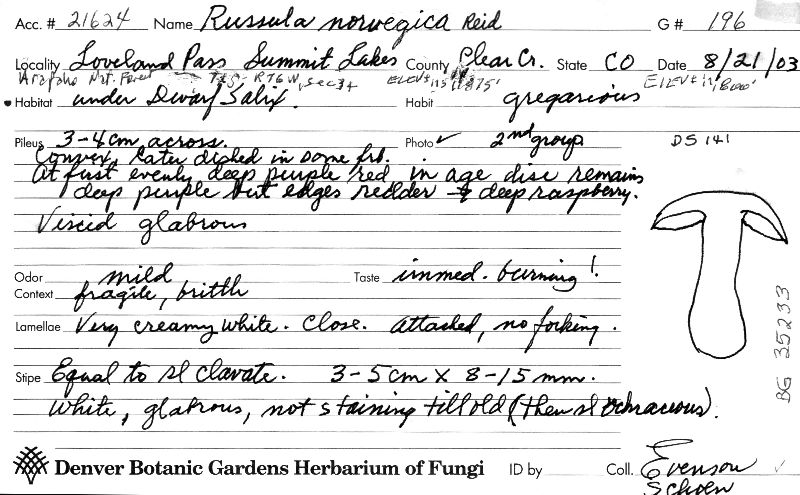 Acc. # 21624 Name Russula norwegica Reid G # 196
Locality Loveland Pass Summit Lakes County Clear Cr. State CO Date 8/21/03
Arapaho Nat. Forest T5S, R76W, sec 34 ELEV
Habitat under Dwarf Salix. Habit gregarious
Pileus 3-4cm across. Photo ✓ 2nd group DS 141
Convex, later dished in some frb.
At first evenly deep purple red in age disc remains
deep purple but edges redder → deep raspberry.
Viscid glabrous
Odor mild Taste immed. burning!
Context fragile, brittle
Lamellae Very creamy white. Close. Attached, no forking.
Stipe Equal to sl clavate. 3-5cm x 8-15 mm.
White, glabrous, not staining till old (then sl ochraceous).
BG 35233
Denver Botanic Gardens Herbarium of Fungi ID by Coll. Evenson
Schoen